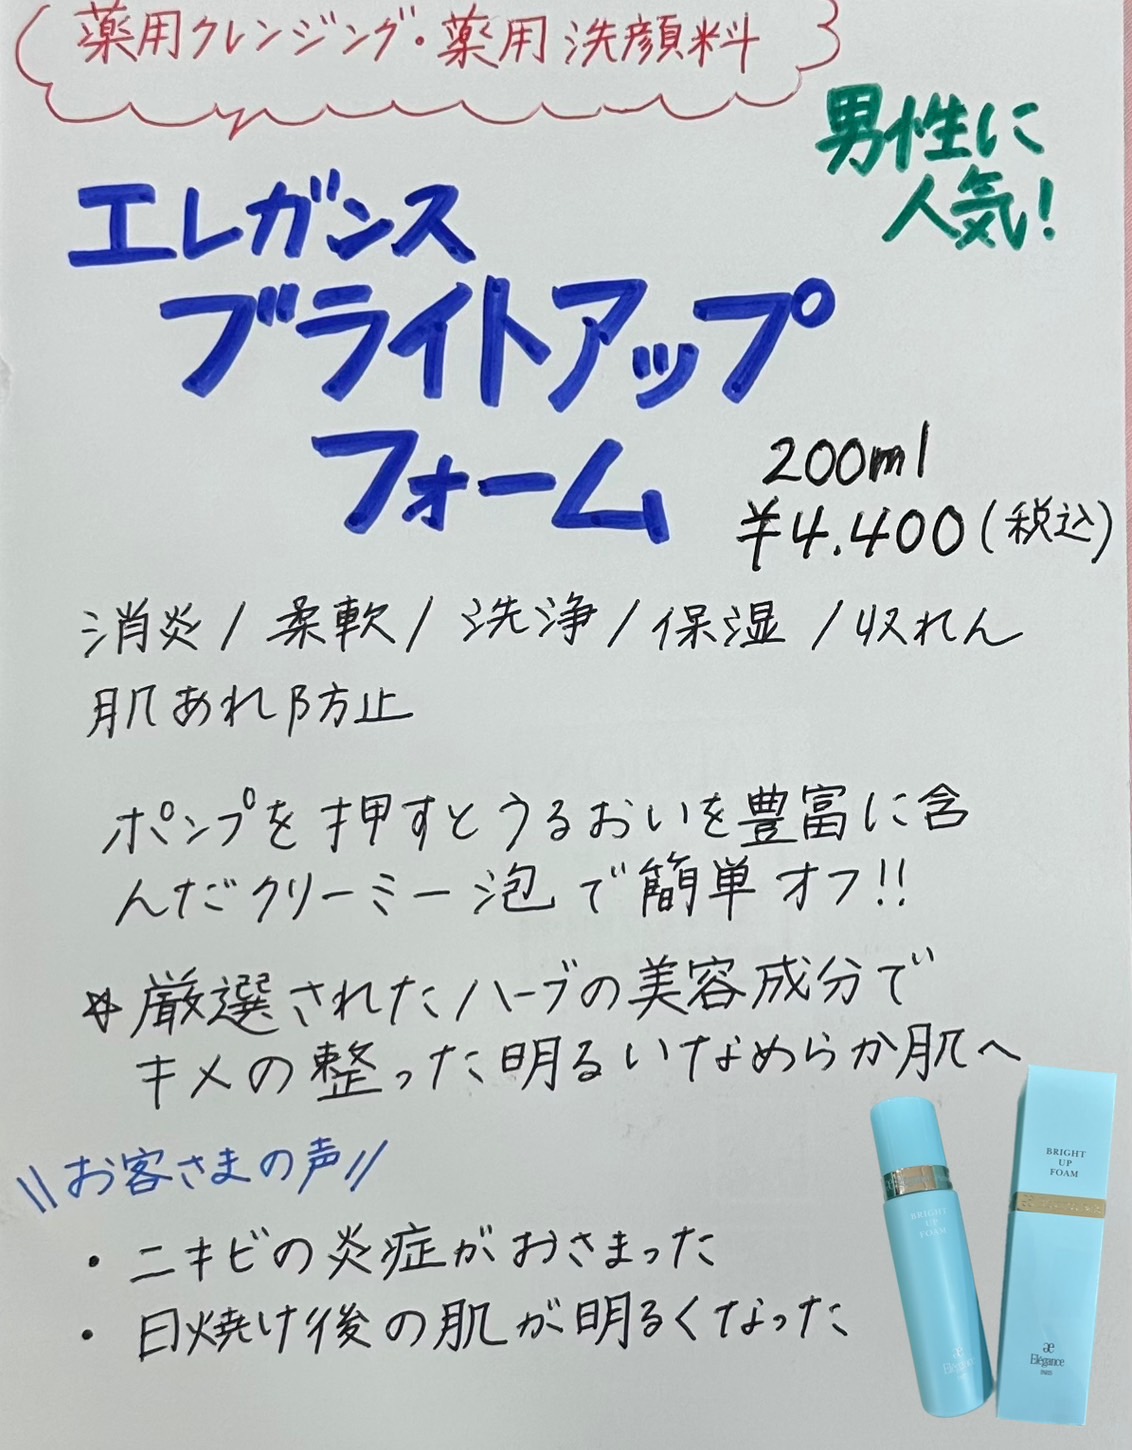 薬用クレンジング・薬用洗顔料
男性に
人気!
エレガンス
ブライトアップ
フォーム
200ml
¥4.400(税込)
消炎/柔軟/洗浄/保湿/収れん
肌あれ防止
ポンプを押すとうるおいを豊富に含
んだクリーミー泡で簡単オフ!!
☆厳選されたハーブの美容成分で
キメの整った明るいなめらか肌へ
\\お客さまの声//
・ニキビの炎症がおさまった
・日焼け後の肌が明るくなった
BRIGHT
UP
FOAM
æ
Elégance
BRIGHT
UP
FOAM
æ
Elégance
PARIS